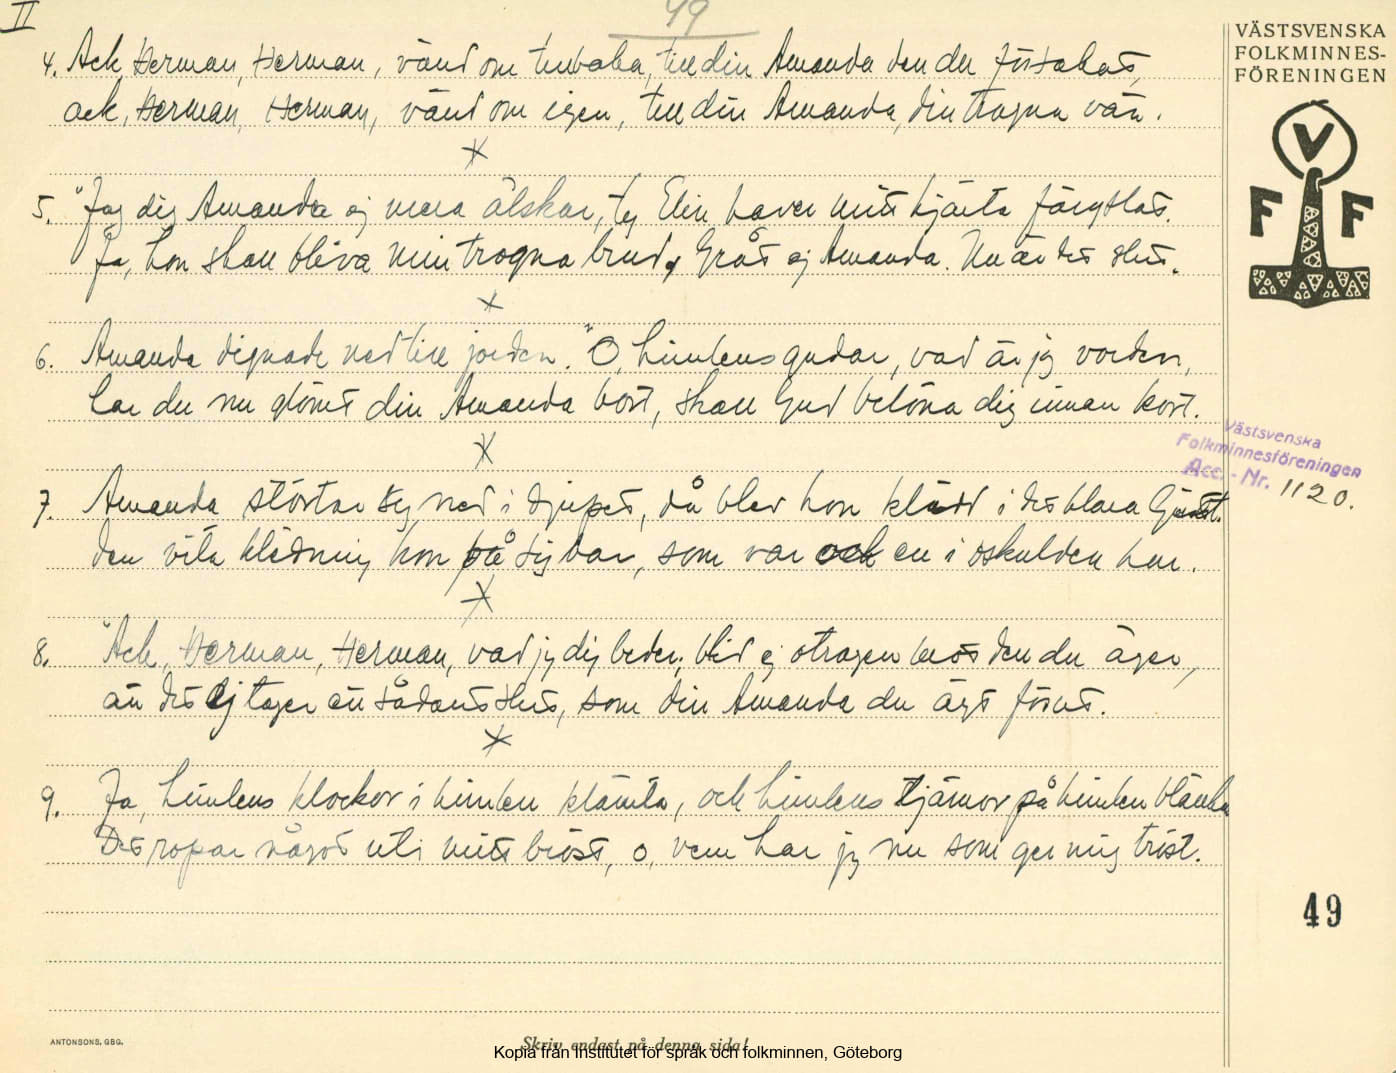 II
49
VÄSTSVENSKA
FOLKMINNES-
FÖRENINGEN
V
F F
4. Ack Herman, Herman, vänd om tillbaka, till din Amanda den du försakat,
ack, Herman, Herman, vänd om igen, till din Amanda, din trogna vän.
5. "Jag dig Amanda ej mera älskar, ty Elin haver mitt hjärta fängslat.
Ja, hon skall bliva min trogna brud, Gråt ej Amanda. Nu är det slut.
6. Amanda dignade ned till jorden. "O, himlens gudar, vad är jag vorden,
har du nu glömt din Amanda bort, skall Gud belöna dig innan kort.
7. Amanda störtar sig ned i djupet, då blev hon klädd i det blåa
den vita klädning hon på sig bar, som var och en i oskulden har.
8. "Ack, Herman, Herman, vad jag dig beder, bliv ej otrogen mot den du äger,
än det ej tager en sådant slut, som din Amanda du ägt förut.
9. Ja, himlens klockor i himlen klämta, och himlens stjärnor på himlen blänka
Det ropar något uti mitt bröst, o, vem har jag nu som ger mig tröst.
Västsvenska
Folkminnesföreningen
Acc. - Nr. 1120.
49
ANTONSONS, GBG.
Skriv endast på denna sida!
Kopia från Institutet för språk och folkminnen, Göteborg